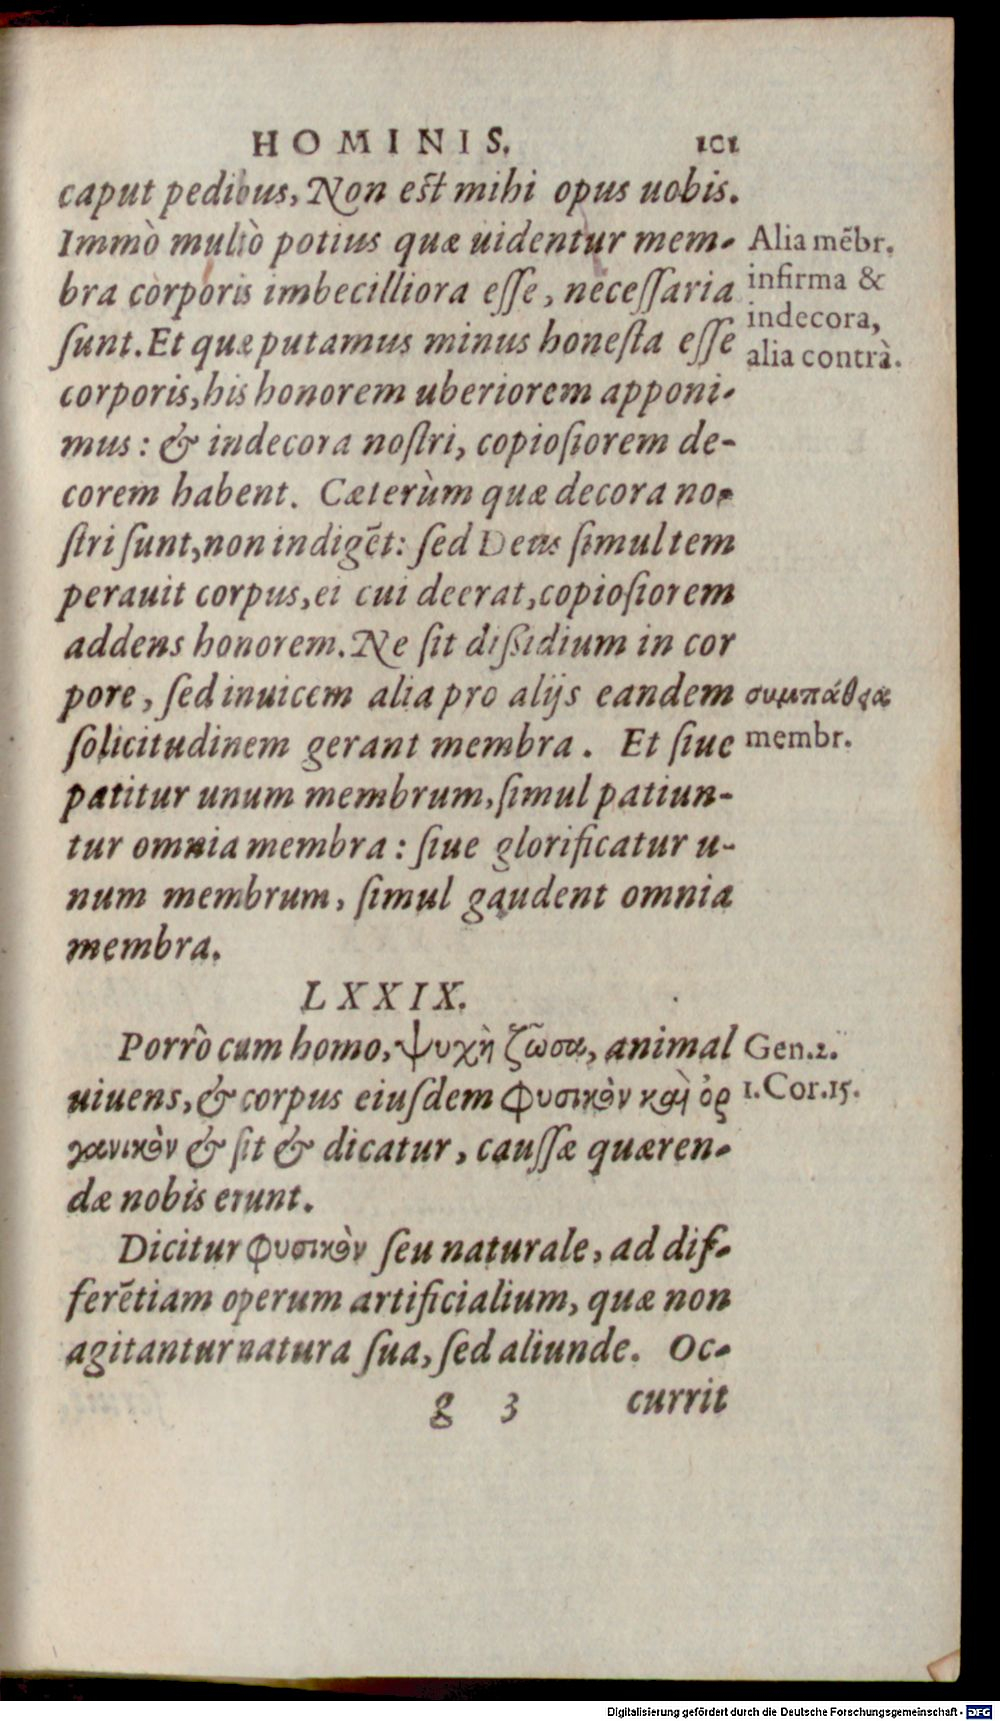 HOMINIS. 101
caput pedibus, Non est mihi opus uobis.
Immò multò potius quæ uidentur mem-
bra corporis imbecilliora esse, necessaria
sunt. Et quæ putamus minus honesta esse
corporis, his honorem uberiorem apponi-
mus: & indecora nostri, copiosiorem de-
corem habent. Cæterùm quæ decora no-
stri sunt, non indigēt: sed Deus simul tem
perauit corpus, ei cui deerat, copiosiorem
addens honorem. Ne sit dißidium in cor
pore, sed inuicem alia pro alijs eandem
solicitudinem gerant membra. Et siue
patitur unum membrum, simul patiun-
tur omnia membra: siue glorificatur u-
num membrum, simul gaudent omnia
membra.
Alia mēbr.
infirma &
indecora,
alia contrà.
συμπάθεια
membr.
LXXIX.
Porrò cum homo, ψυχὴ ζῶσα, animal
uiuens, & corpus eiusdem φυσικὸν καὶ ὀρ
γανικὸν & sit & dicatur, caussæ quæren-
dæ nobis erunt.
Gen.2.
1.Cor.15.
Dicitur φυσικὸν seu naturale, ad dif-
ferētiam operum artificialium, quæ non
agitantur natura sua, sed aliunde. Oc-
g 3 currit
Digitalisierung gefördert durch die Deutsche Forschungsgemeinschaft - DFG